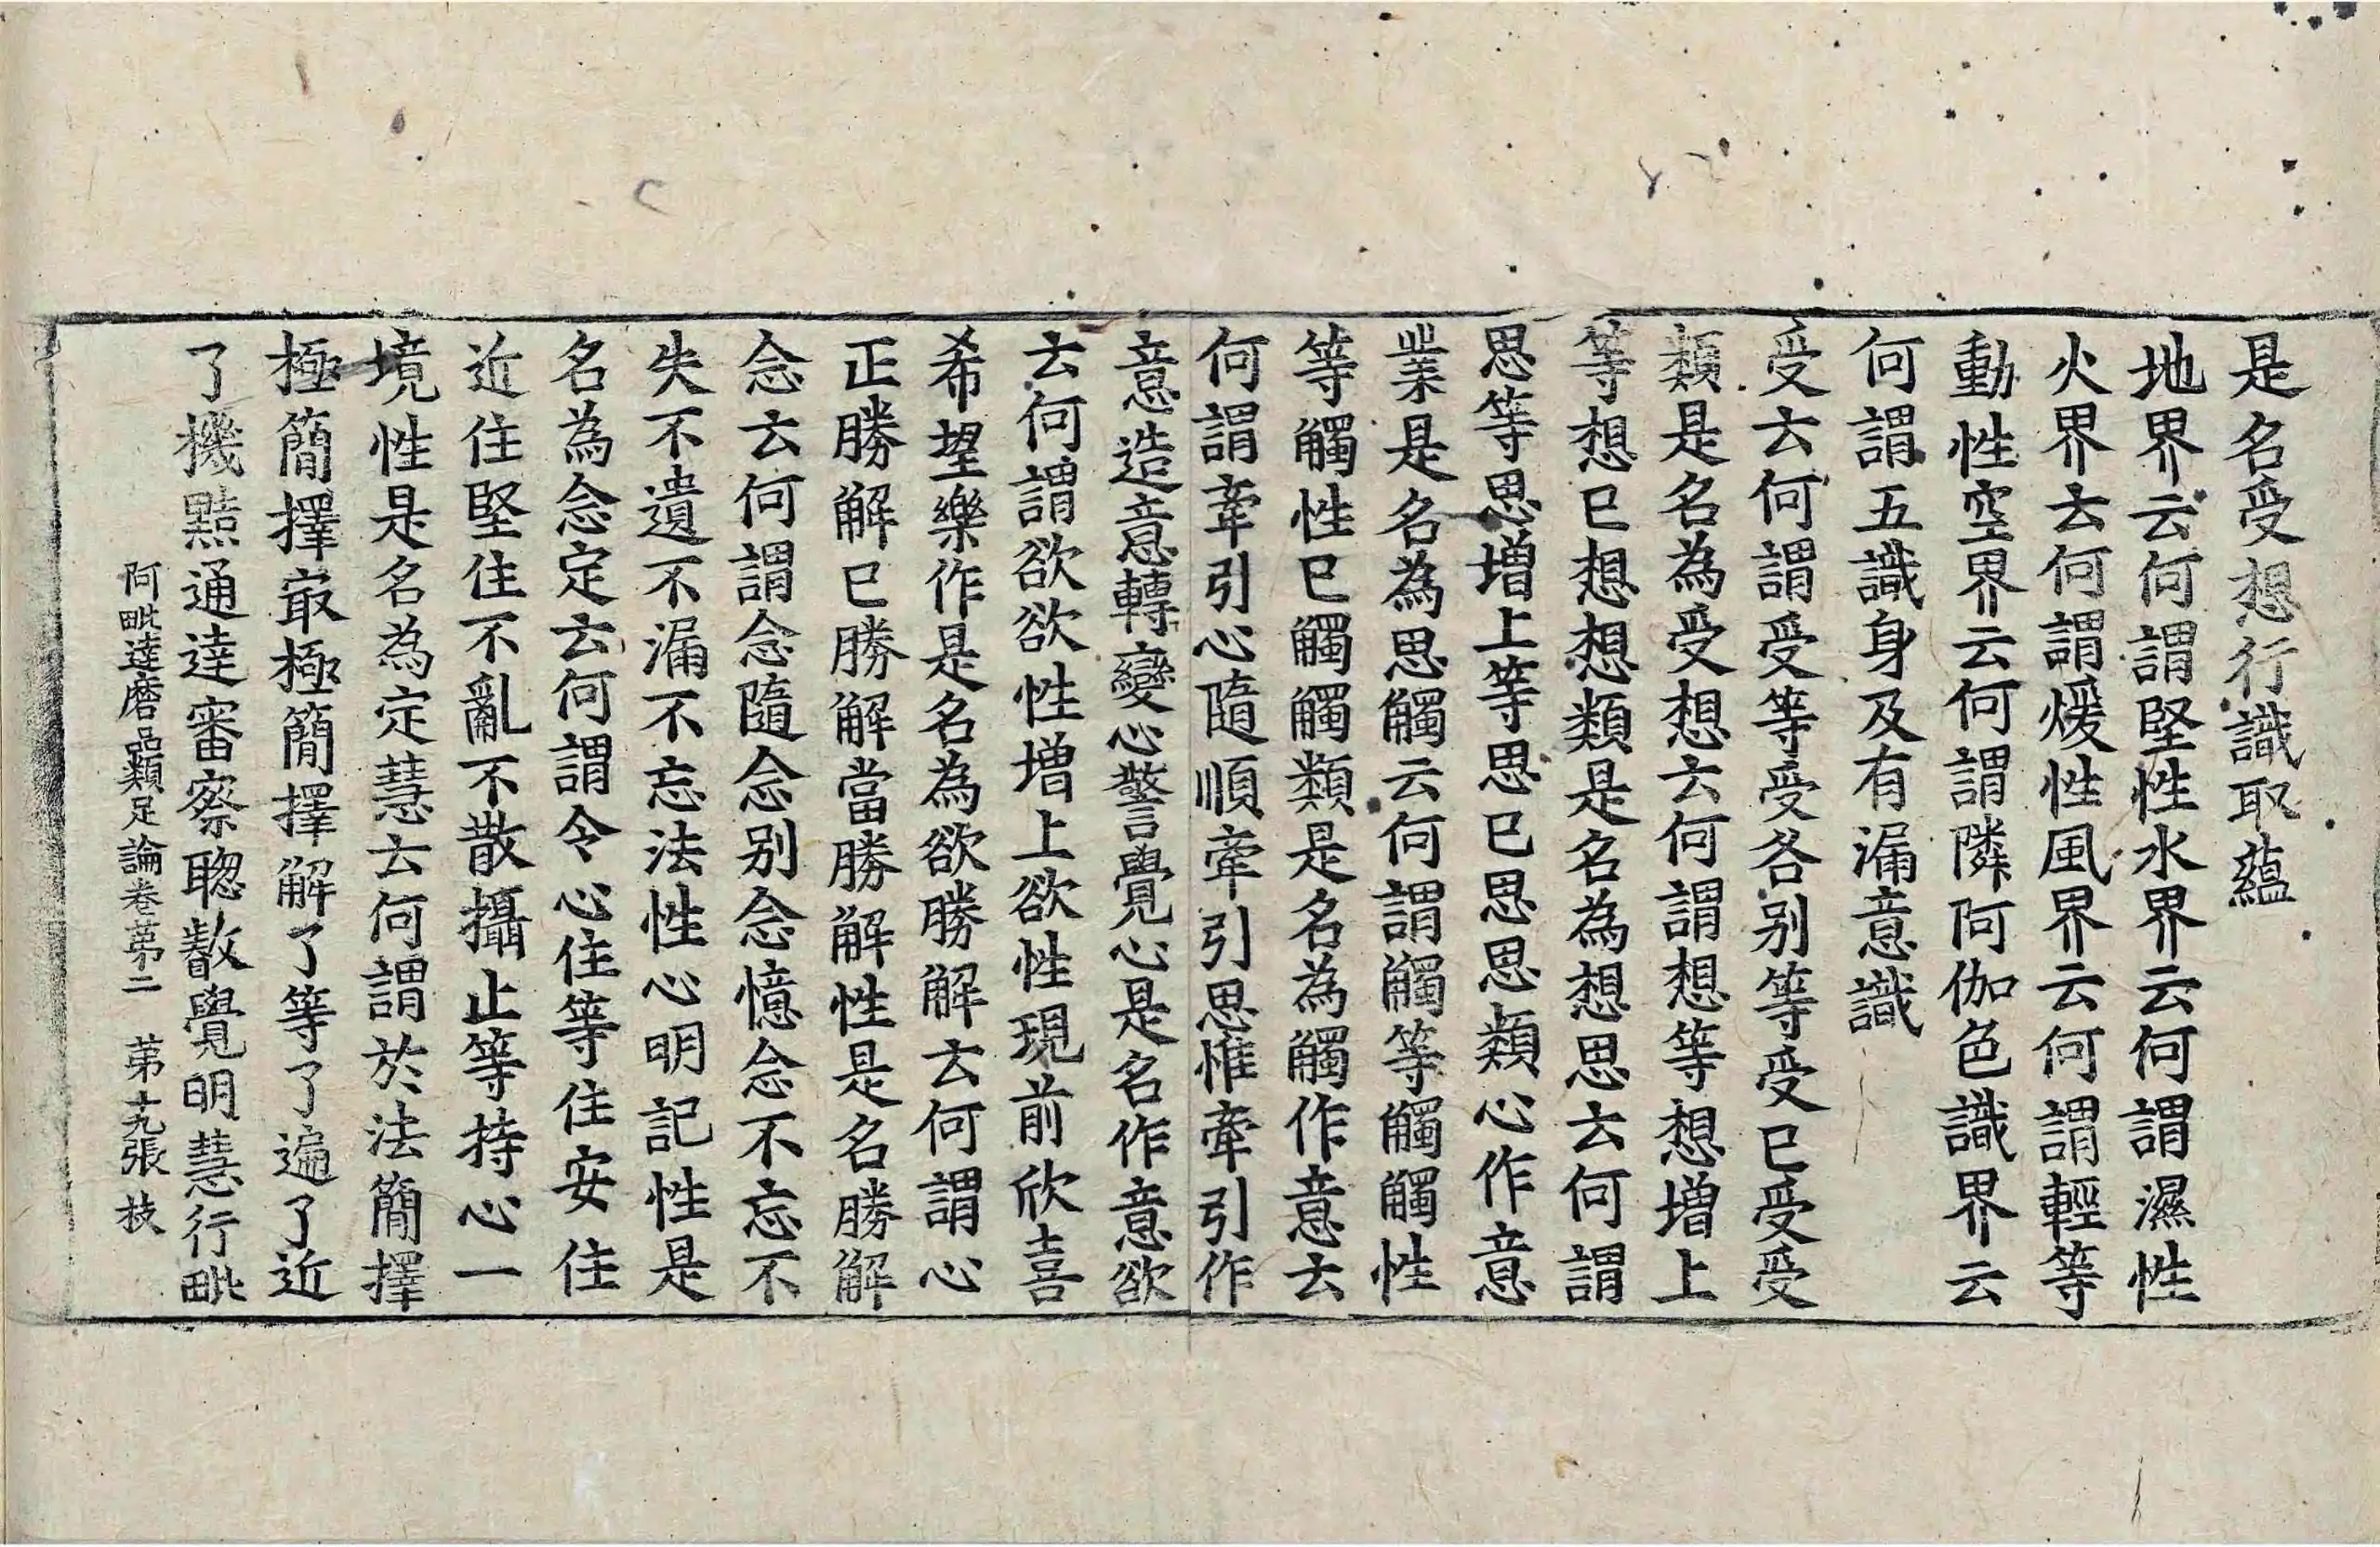 是名受想行識取蘊
地界云何謂堅性水界云何謂濕性
火界云何謂煖性風界云何謂輕等
動性空界云何謂隣阿伽色識界云
何謂五識身及有漏意識
受云何謂受等受各別等受已受受
類是名為受想云何謂想等想增上
等想已想想類是名為想思云何謂
思等思增上等思已思思類心作意
業是名為思觸云何謂觸等觸觸性
等觸性已觸觸類是名為觸作意云
何謂牽引心隨順牽引思惟牽引作
意造意轉變心警覺心是名作意欲
云何謂欲欲性增上欲性現前欣喜
希望樂作是名為欲勝解云何謂心
正勝解已勝解當勝解性是名勝解
念云何謂念隨念別念憶念不忘不
失不遺不漏不忘法性心明記性是
名為念定云何謂令心住等住安住
近住堅住不亂不散攝止等持心一
境性是名為定慧云何謂於法簡擇
極簡擇㝡極簡擇解了等了遍了近
了機黠通達審察聰叡覺明慧行毗
阿毗達磨品類足論卷苐二　苐十九張　枝